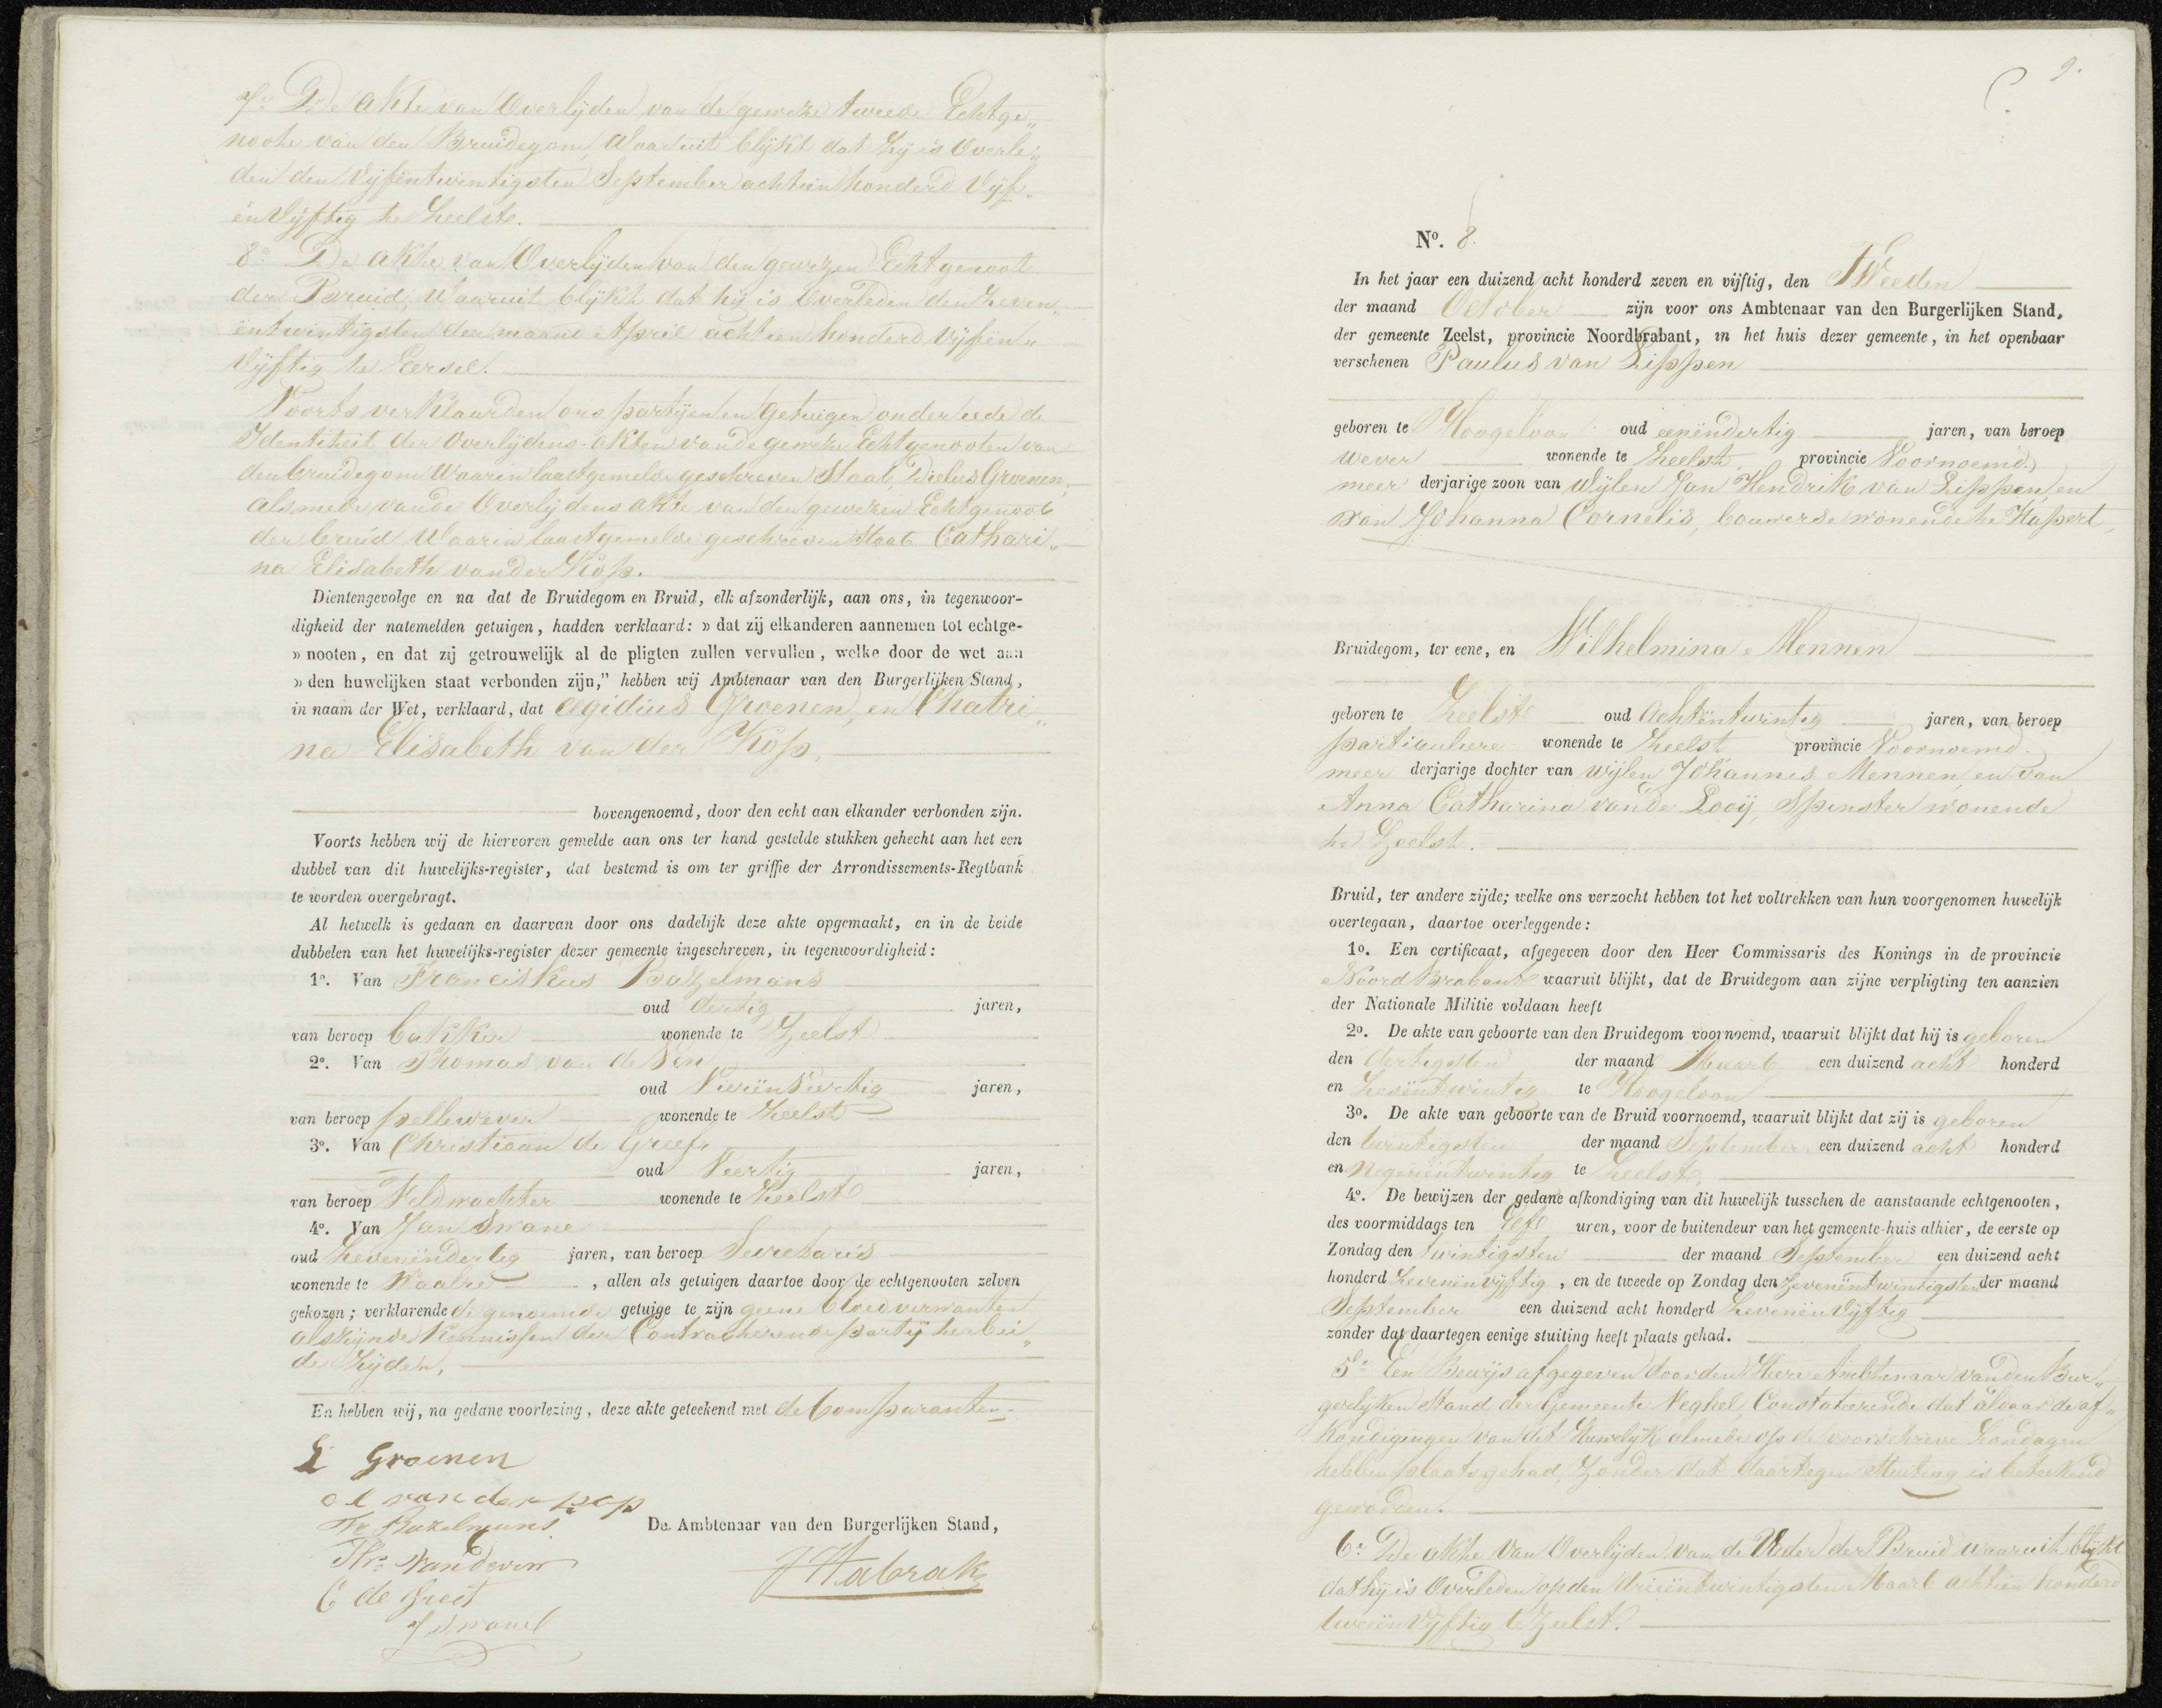 7o De akte van Overlijden van de geweze tweede Echtge„
noote van den Bruidegom, Waaruit blijkt dat zij is Overle„
den den Vijfentwintigsten September achttien honderd Vijf„
en Vijftig te Zeelst.
8o De akte van Overlijden van den gewezen Echtgenoot
der Bruid, Waaruit blijkt dat hij is Overleden den Zeven„
entwintigsten der maand April achttien honderd Vijfen„
Vijftig te Eersel.
Voorts verklaarden ons partijen en Getuigen onder eede de
Identiteit der Overlijdens-akten van de geweze Echtgenooten van
den bruidegom Waarin laastgemelde geschreven Staat, Dielus Groenen,
alsmede van de Overlijdens akte van den gewezen Echtgenoot
der bruid Waarin laastgemelde geschreven Staat Cathari„
na Elisabeth van der Kop.
Dientengevolge en na dat de Bruidegom en Bruid, elk afzonderlijk, aan ons, in tegenwoor-
digheid der natemelden getuigen, hadden verklaard: » dat zij elkanderen aannemen tot echtge-
» nooten, en dat zij getrouwelijk al de pligten zullen vervullen, welke door de wet aan
» den huwelijken staat verbonden zijn,” hebben wij Ambtenaar van den Burgerlijken Stand,
in naam der Wet, verklaard, dat Ægidius Groenen, en Chatri„
na Elisabeth van der Kop,
bovengenoemd, door den echt aan elkander verbonden zijn.
Voorts hebben wij de hiervoren gemelde aan ons ter hand gestelde stukken gehecht aan het een
dubbel van dit huwelijks-register, dat bestemd is om ter griffie der Arrondissements-Regtbank
te worden overgebragt.
Al hetwelk is gedaan en daarvan door ons dadelijk deze akte opgemaakt, en in de beide
dubbelen van het huwelijks-register dezer gemeente ingeschreven, in tegenwoordigheid:
1o. Van Franciskus Bazelmans
oud dertig jaren,
van beroep bakker wonende te Zeelst
2o. Van Thomas van de Ven
oud Vierenveertig jaren,
van beroep pellewever wonende te Zeelst
3o. Van Christiaan de Greef
oud Veertig jaren,
van beroep Veldwachter wonende te Zeelst
4o. Van Jan Swane
oud Zevenendertig jaren, van beroep Secretaris
wonende te Waalre, allen als getuigen daartoe door de echtgenooten zelven
gekozen; verklarende de genoemde getuige te zijn geene bloedverwanten
als zijnde Kennissen der Contracterende partij ter bei„
de Zijden,
En hebben wij, na gedane voorlezing, deze akte geteekend met de Comparanten.
Groenen
van der kop
Fr Bazelmans
De Ambtenaar van den Burgerlijken Stand,
Ths van de ven
C de Greef
J Swane
9.
No. 8.
In het jaar een duizend acht honderd zeven en vijftig, den Tweeden
der maand October zijn voor ons Ambtenaar van den Burgerlijken Stand,
der gemeente Zeelst, provincie Noordbrabant, in het huis dezer gemeente, in het openbaar
verschenen Paulus van Lippen
geboren te Hoogeloon oud eenendertig jaren, van beroep
wever wonende te Zeelst, provincie Voornoemd.
meer derjarige zoon van wijlen Jan Hendrik van Lippen, en
van Johanna Cornelis, bouwerse wonende te Hapert,
Bruidegom, ter eene, en Wilhelmina Mennen
geboren te Zeelst oud Achtentwintig jaren, van beroep
particuliere wonende te Zeelst provincie Voornoemd.
meer derjarige dochter van wijlen Johannes Mennen, en van
Anna Catharina van de Looij, Spinster wonende
te Zeelst.
Bruid, ter andere zijde; welke ons verzocht hebben tot het voltrekken van hun voorgenomen huwelijk
overtegaan, daartoe overleggende:
1o. Een certificaat, afgegeven door den Heer Commissaris des Konings in de provincie
Noord Brabant waaruit blijkt, dat de Bruidegom aan zijne verpligting ten aanzien
der Nationale Militie voldaan heeft
2o. De akte van geboorte van den Bruidegom voornoemd, waaruit blijkt dat hij is geboren
den dertigsten der maand Maart een duizend acht honderd
en Zesentwintig te Hoogeloon
3o. De akte van geboorte van de Bruid voornoemd, waaruit blijkt dat zij is geboren
den twintigsten der maand September een duizend acht honderd
en Negenentwintig te Zeelst,
4o. De bewijzen der gedane afkondiging van dit huwelijk tusschen de aanstaande echtgenooten,
des voormiddags ten Elf uren, voor de buitendeur van het gemeente-huis alhier, de eerste op
Zondag den twintigsten der maand September een duizend acht
honderd Zevenenvijftig, en de tweede op Zondag den Zevenentwintigsten der maand
September een duizend acht honderd Zevenenvijftig
zonder dat daartegen eenige stuiting heeft plaats gehad.
5e Een Bewijs afgegeven door den Heere Ambtenaar van den Bur„
gerlijken Stand der Gemeente Veghel, Constateerende dat aldaar de af„
kondigingen van dit Huwelijk almede op de voorschreve Zondagen
hebben plaats gehad, Zonder dat daartegen Stuiting is beteekend
geworden.
6o De akte van Overlijden van de Vader der Bruid waaruit blijkt
dat hij is Overleden op den drieentwintigsten Maart achttien honderd
tweeenvijftig te Zeelst.